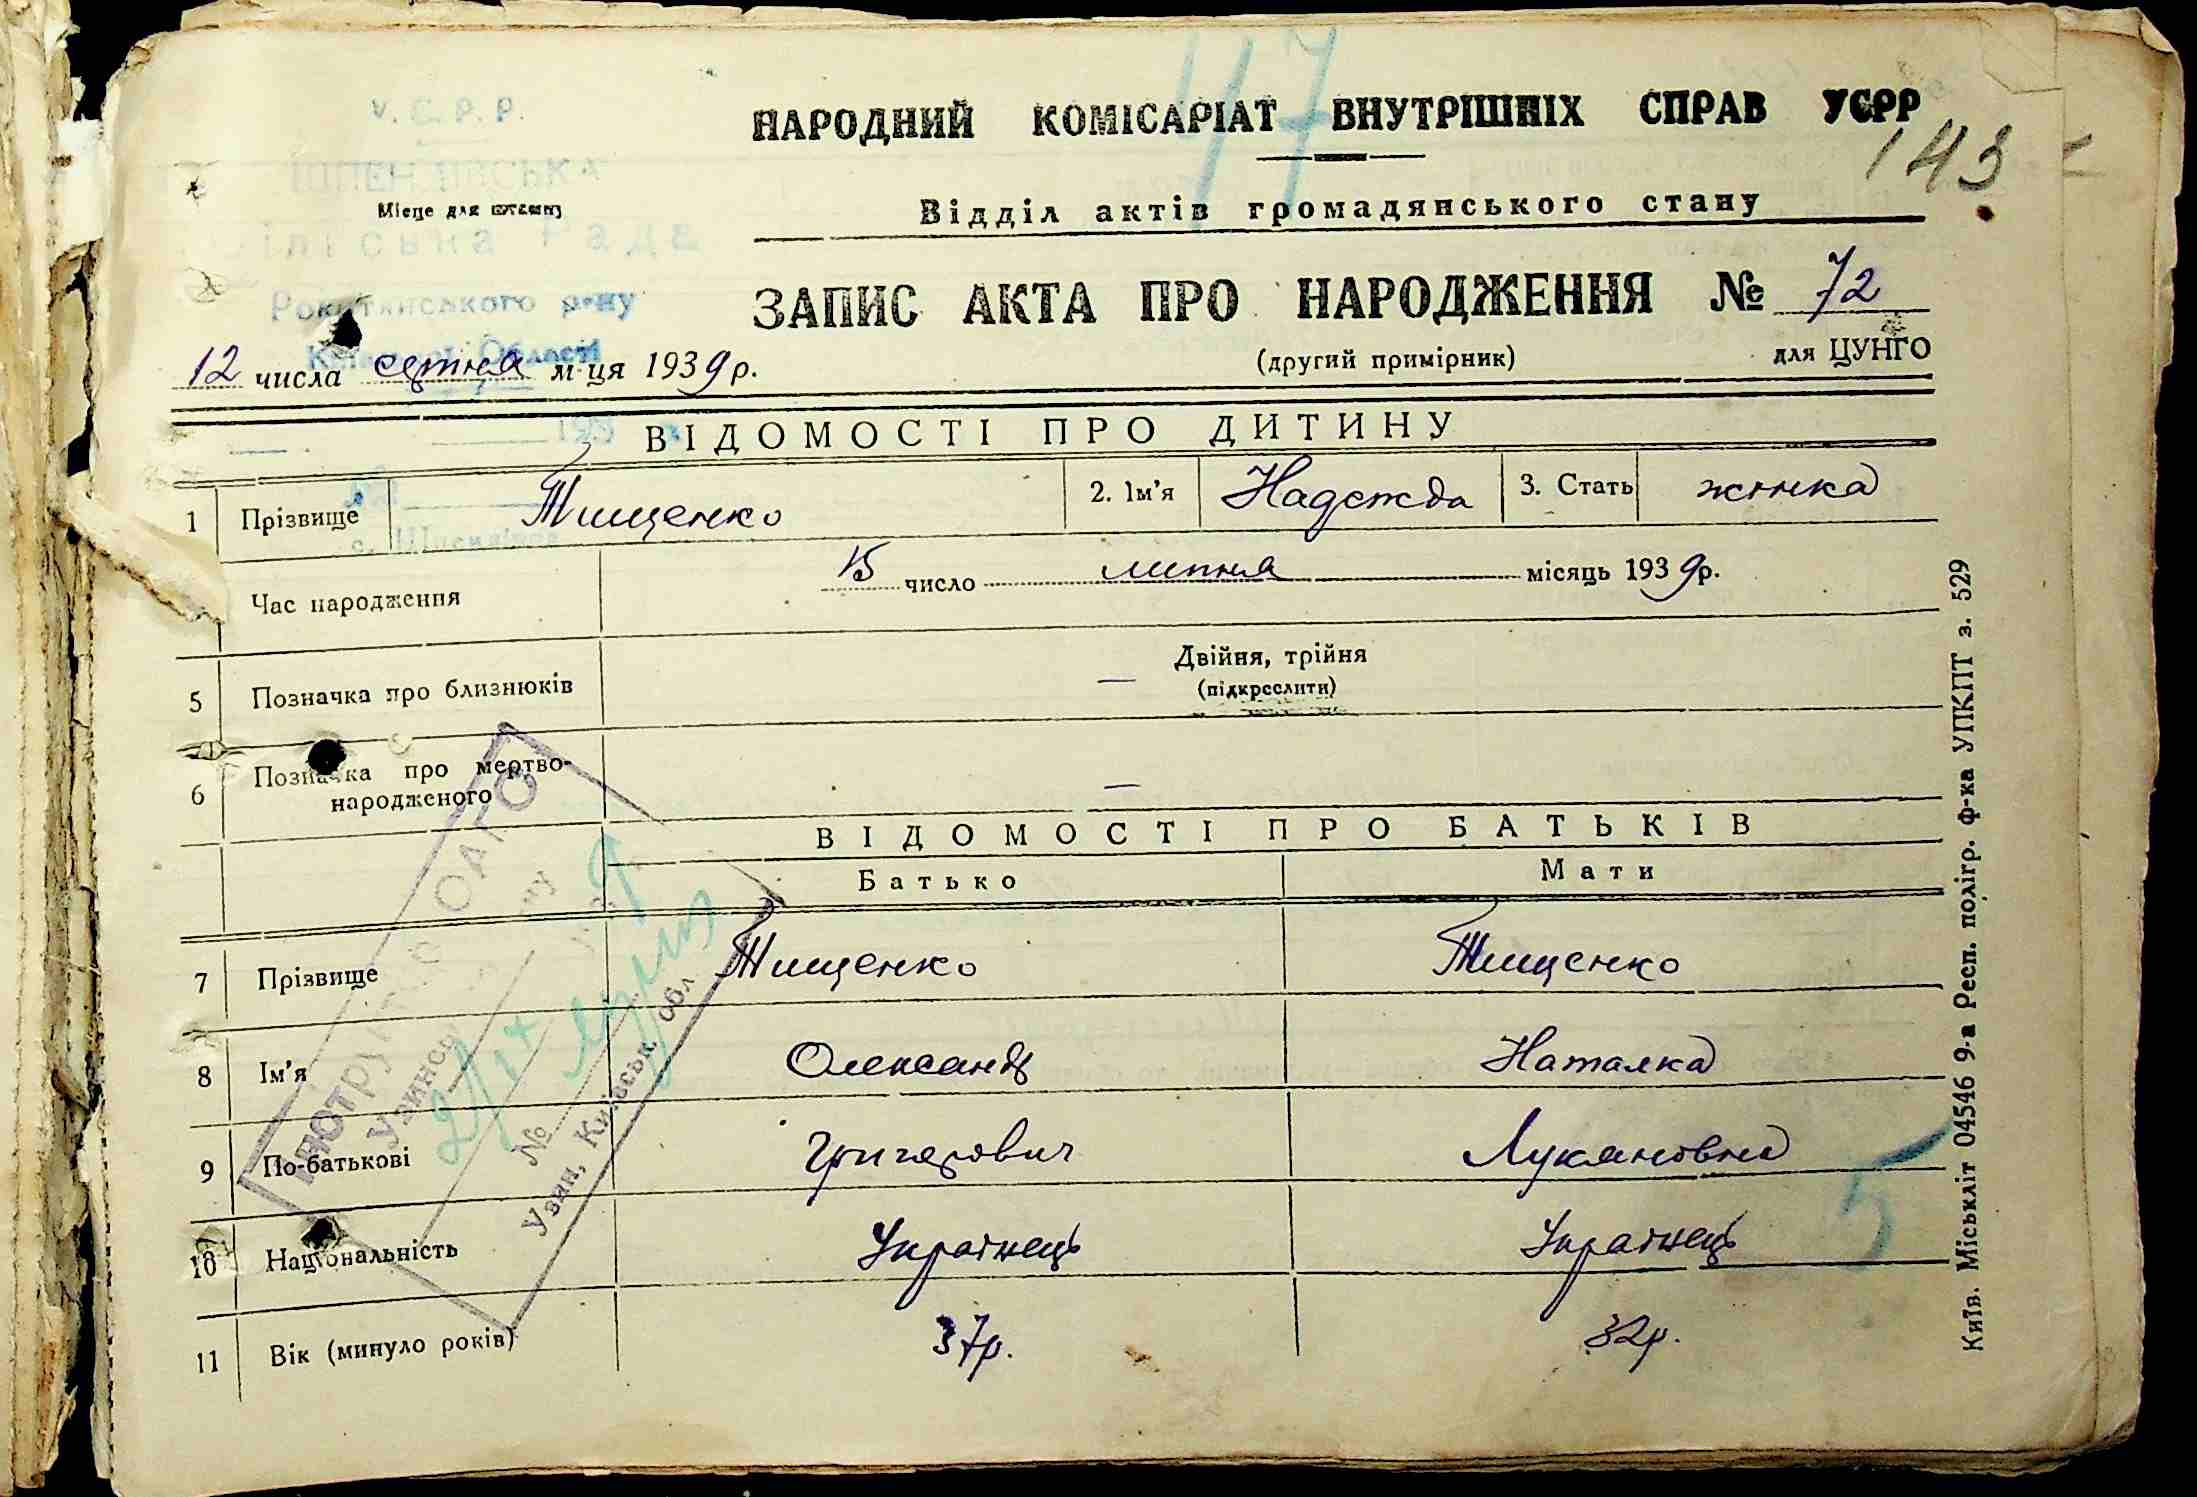 47
У. С. Р. Р.
НАРОДНИЙ КОМІСАРІАТ ВНУТРІШНІХ СПРАВ УСРР
143
ШПЕНДІВСЬКА
Місце для штампу
Відділ актів громадянського стану
Сільська Рада
Рокитянського р-ну
ЗАПИС АКТА ПРО НАРОДЖЕННЯ № 72
Київської Області
(другий примірник) для ЦУНГО
12 числа серпня м-ця 1939 р.
193
ВІДОМОСТІ ПРО ДИТИНУ
№
1 Прізвище Тищенко 2. Ім'я Надежда 3. Стать жінка
с. Шпендівка
Час народження 15 число липня місяць 1939 р.
5 Позначка про близнюків — Двійня, трійня
(підкреслити)
6 Позначка про мертво-
народженого —
ВІДОМОСТІ ПРО БАТЬКІВ
Батько Мати
7 Прізвище Тищенко Тищенко
8 Ім'я Олександр Наталка
9 По-батькові Григорович Лукяновна
10 Національність Українець Українець
11 Вік (минуло років) 37р. 32р.
5
№
Узин, Київськ. обл.
Київ. Міськліт 04546 9-а Респ. полігр. ф-ка УПКПТ з. 529